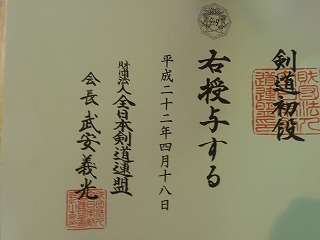 剣道初段
右授与する
平成二十二年四月十八日
財団法人全日本剣道連盟
会長 武安義光